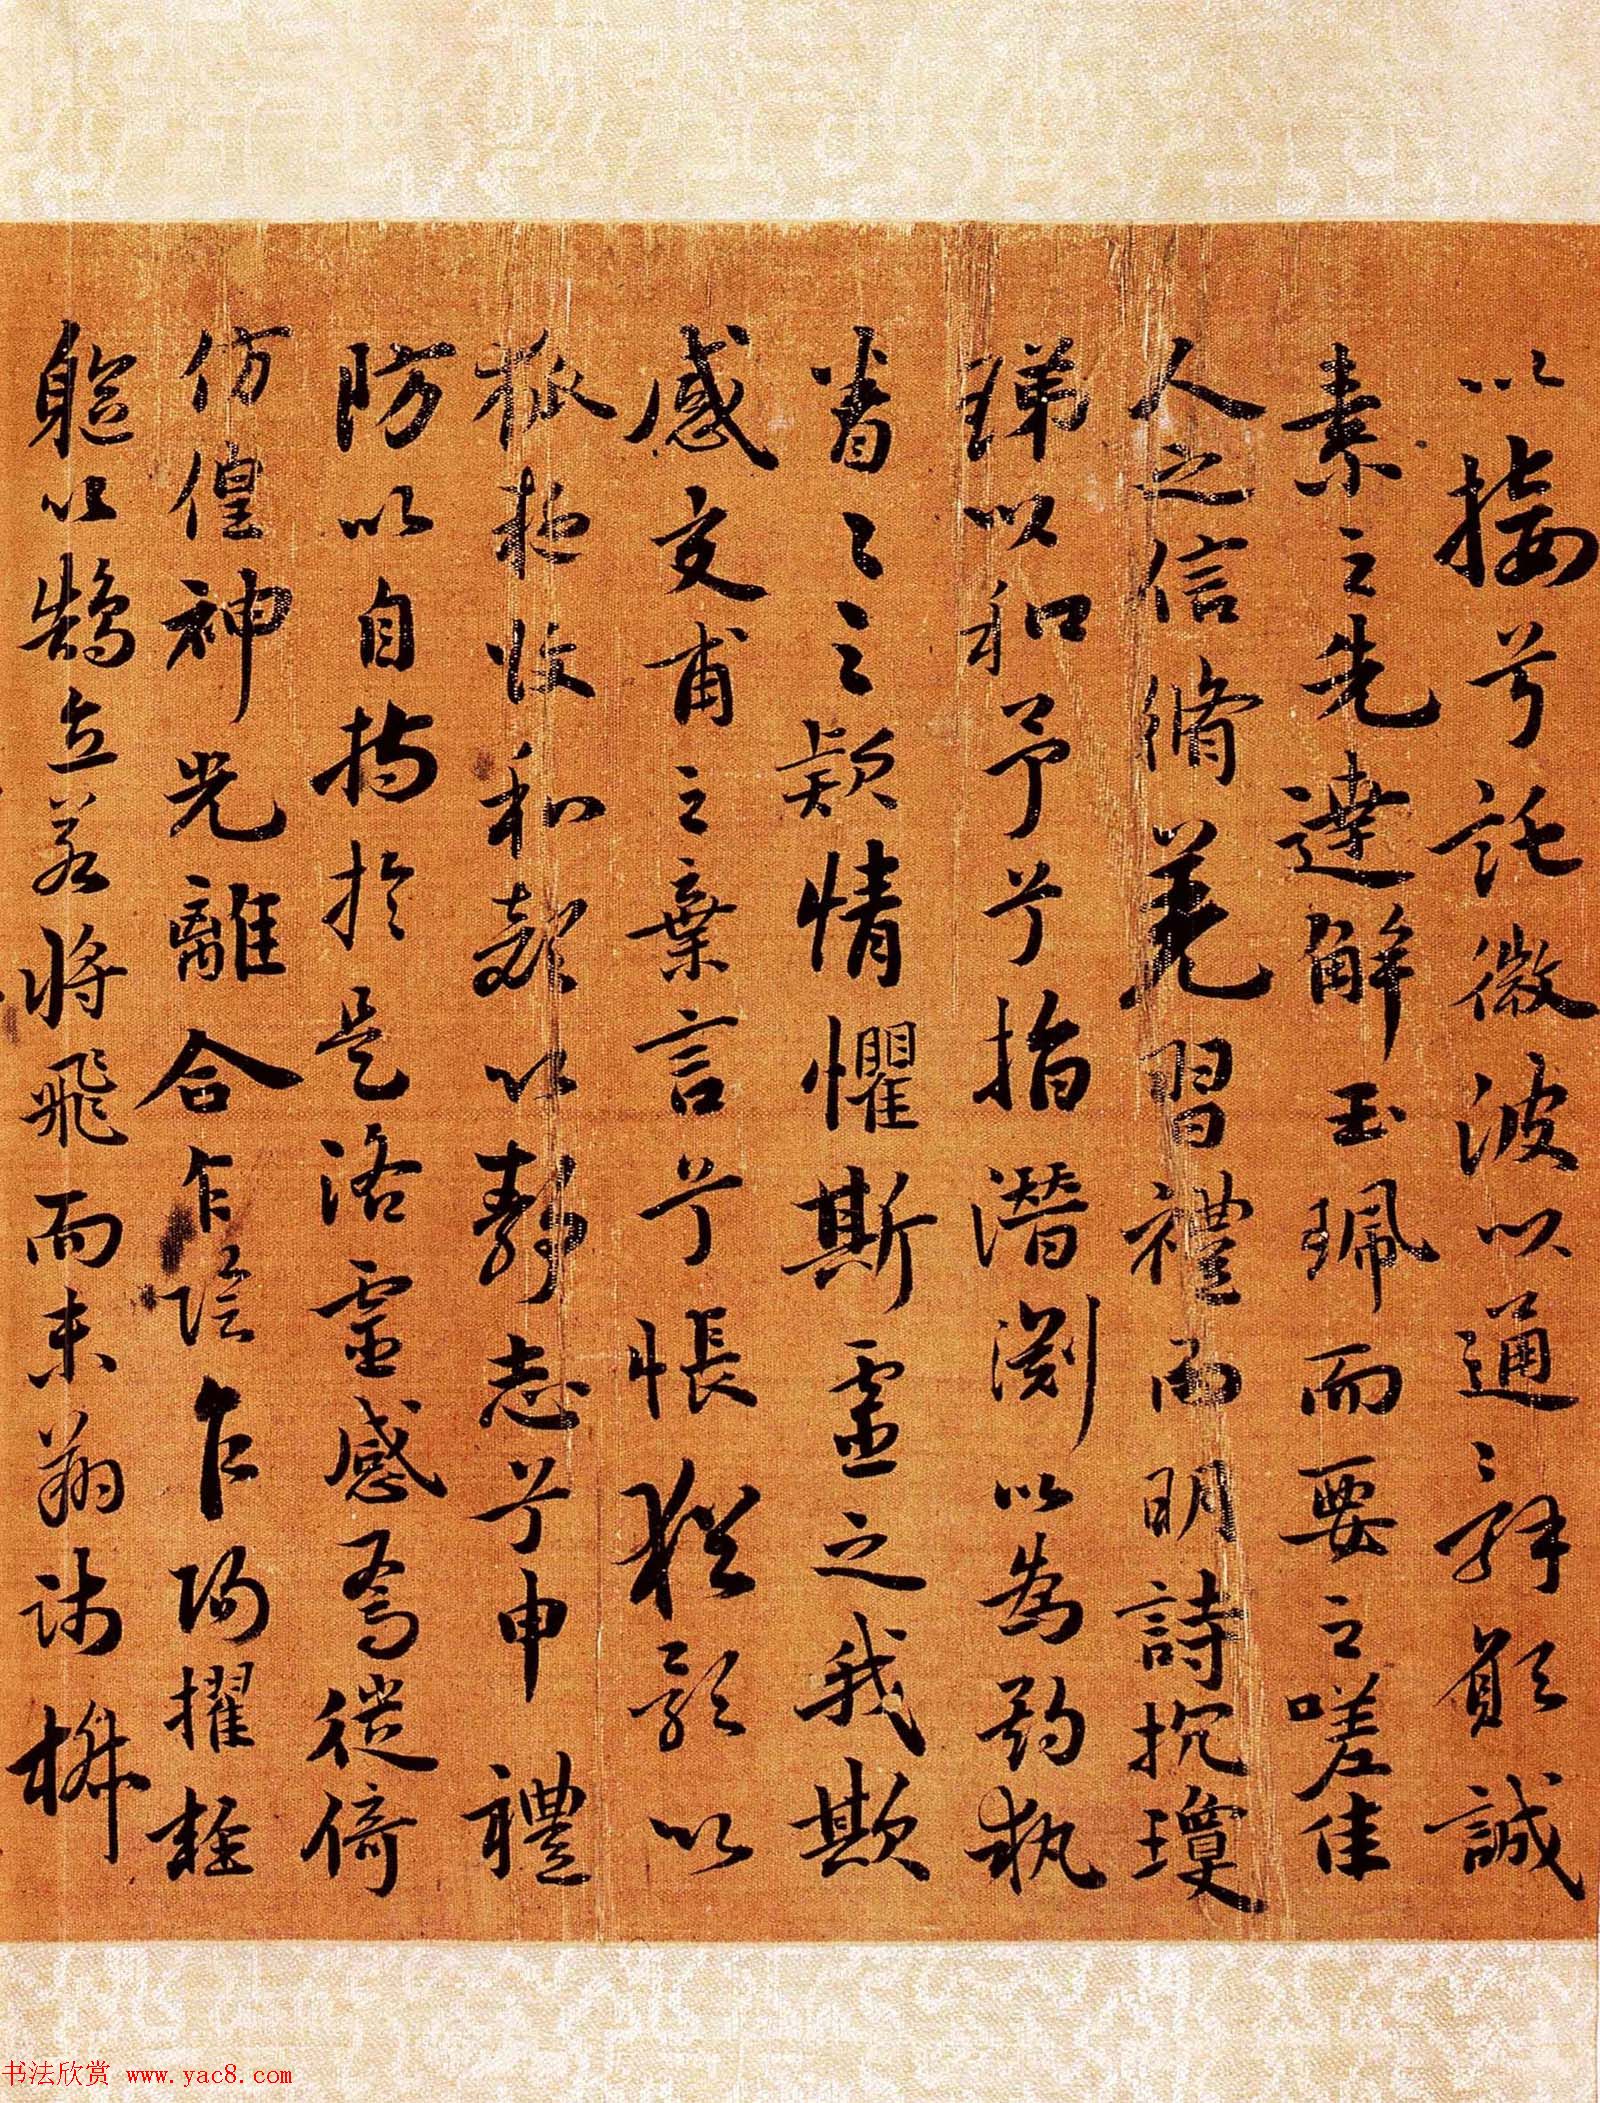 以接兮託微波以通辭願誠
素之先達解玉珮而要之嗟佳
人之信脩羌習禮而明詩抗瓊
珶以和予兮指潛淵以為期執
眷〻之款情懼斯靈之我欺
感交甫之棄言兮悵猶豫以
狐疑收和顏以靜志兮申禮
防以自持於是洛靈感焉徙倚
仿偟神光離合乍陰乍陽擢輕
軀以鶴立若將飛而未翔踐椒
书法欣赏 www.yac8.com